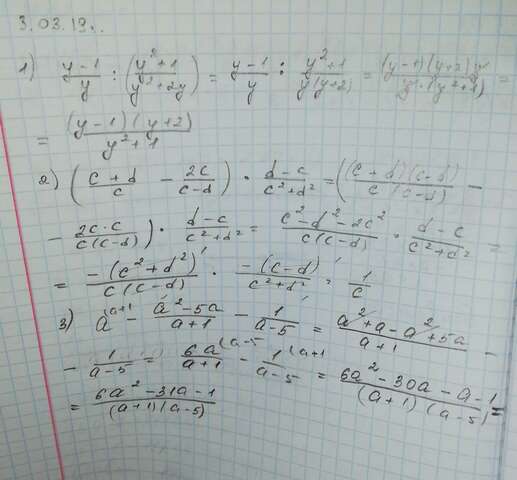 3.03.19..
1) (y-1)/y : ((y²+1)/(y²+2y)) = (y-1)/y : (y²+1)/(y(y+2)) = ((y-1)(y+2)y)/(y·(y²+1)) =
= ((y-1)(y+2))/(y²+1)
2) ((c+d)/c - 2c/(c-d)) · (d-c)/(c²+d²) = (((c+d)(c-d))/(c(c-d)) -
- (2c·c)/(c(c-d))) · (d-c)/(c²+d²) = (c²-d²-2c²)/(c(c-d)) · (d-c)/(c²+d²) =
= (-(c²+d²))/(c(c-d)) · (-(c-d))/(c²+d²) = 1/c
3) a^(a+1) - (a²-5a)/(a+1) - 1/(a-5) = (a²+a-a²+5a)/(a+1) -
- 1/(a-5) = 6a/(a+1) (a-5 - 1/(a-5) (a+1 = (6a²-30a-a-1)/((a+1)(a-5)) =
= (6a²-31a-1)/((a+1)(a-5))